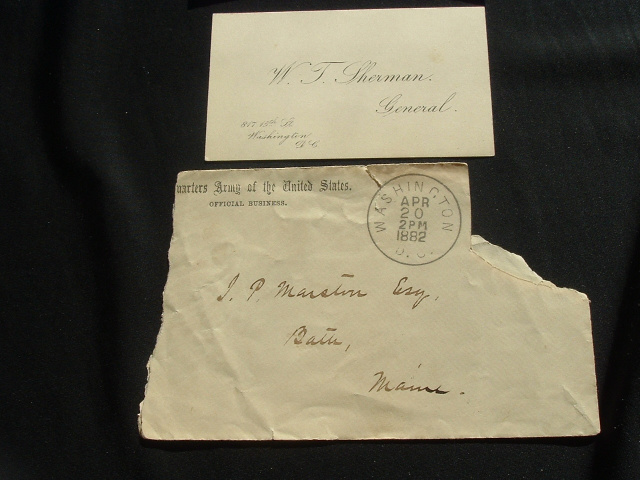 W. T. Sherman.
General.
817 15th St
Washington
D C
quarters Army of the United States.
OFFICIAL BUSINESS.
WASHINGTON
APR
20
2 PM
1882
D. C.
J. P. Marston Esq,
Bath,
Maine.